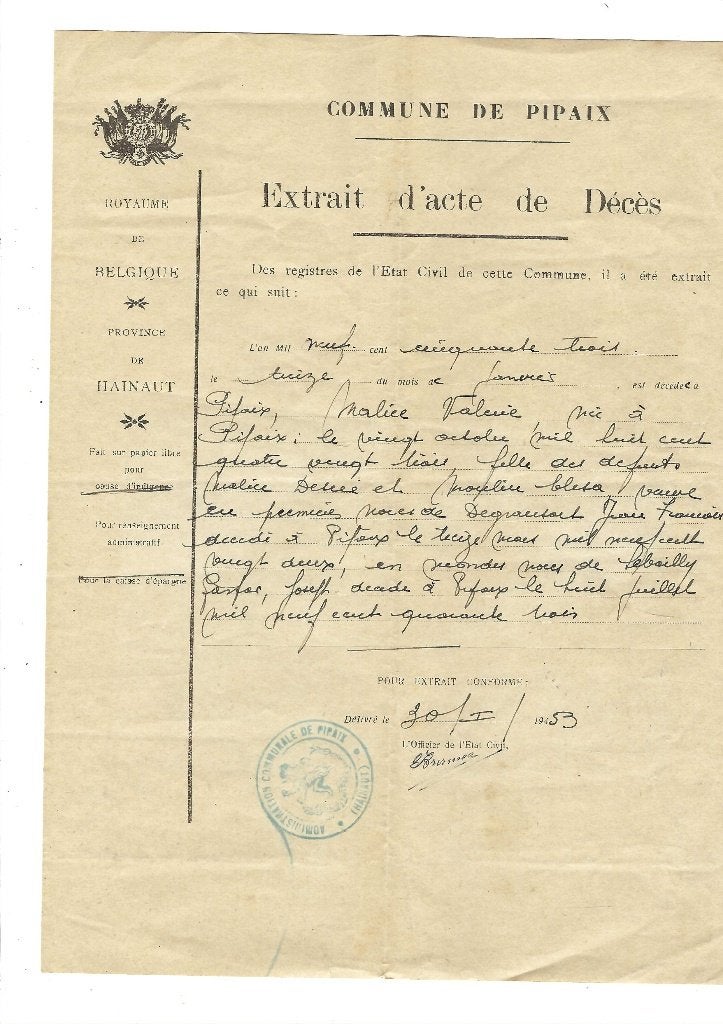 COMMUNE DE PIPAIX
Extrait d'acte de Décès
ROYAUME
DE
BELGIQUE
PROVINCE
DE
HAINAUT
Fait sur papier libre
pour
cause d'indigence
Pour renseignement
administratif
Pour la caisse d'épargne
Des registres de l'Etat Civil de cette Commune, il a été extrait
ce qui suit :
L'an Mil neuf cent cinquante trois
le treize du mois de janvier, est décédée à
Pipaix, Malice Valérie, née à
Pipaix, le vingt octobre mil huit cent
quatre vingt trois, fille des défunts
Malice Désiré et Moulin veuve
en premières noces de Degransart Jean François
décédé à Pipaix le treize mars mil neuf cent
vingt deux, en secondes noces de
Joseph décédé à Pipaix le huit juillet
mil neuf cent quarante trois
POUR EXTRAIT CONFORME:
Délivré le 30/I/1953
L'Officier de l'Etat Civil,
ADMINISTRATION COMMUNALE DE PIPAIX
(HAINAUT)